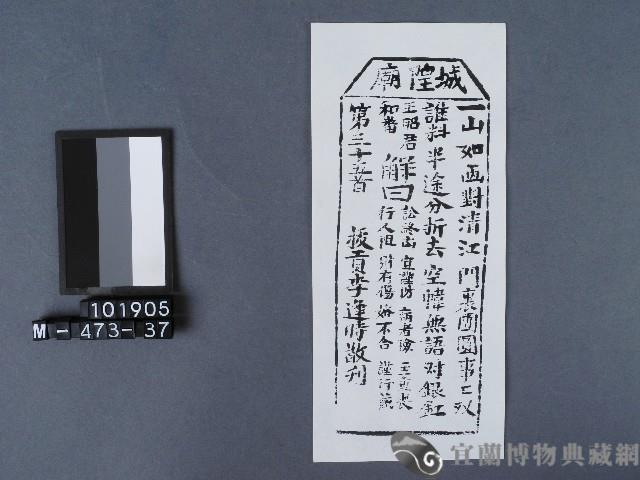 城隍廟
一山如畫對清江門裏團圓事亡双
誰料半途分折去空幃無語对銀缸
王昭君
和番
解曰
訟終凶 宜謹防 病者險
行人阻 財有傷 婚不合 謹行
第三十五首 拔貢李逢時敬刊
101905
M-473-37
宜蘭博物典藏網